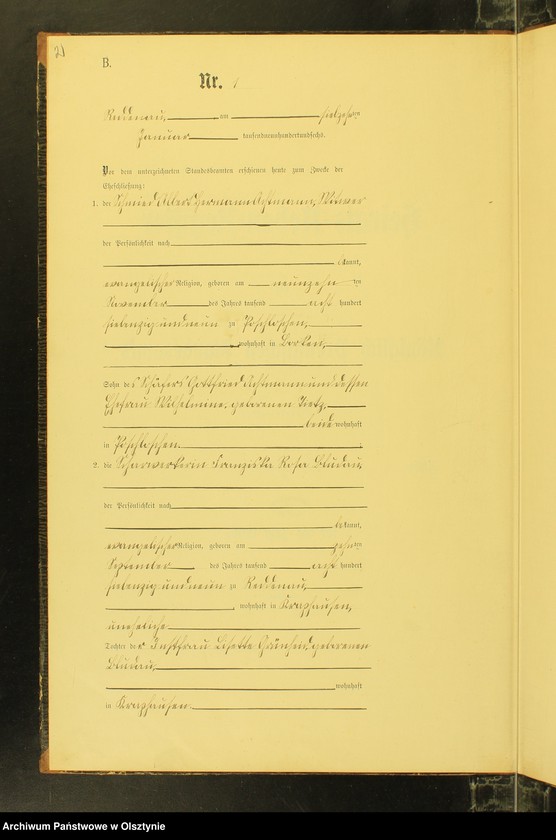 2)
B.
Nr. 1
Reddenau, am siebzehnten
Januar tausendneunhundertundsechs.
Vor dem unterzeichneten Standesbeamten erschienen heute zum Zwecke der
Eheschließung:
1. der Schmied Albert Hermann Achtmann, Witwer
der Persönlichkeit nach
bekannt,
evangelischer Religion, geboren am neunzehnten
November des Jahres tausend acht hundert
siebenzig und neun zu Poschloschen,
wohnhaft in Borken,
Sohn des Schäfers Gottfried Achtmann und dessen
Ehefrau Wilhelmine, geborenen Tietz,
beide wohnhaft
in Poschloschen.
2. die Scharwerkerin Franziska Rosa Bludau,
der Persönlichkeit nach
bekannt,
evangelischer Religion, geboren am zehnten
September des Jahres tausend acht hundert
siebenzig und neun zu Reddenau,
wohnhaft in Kraphausen,
uneheliche
Tochter der Instfrau Lisette geborenen
Bludau,
wohnhaft
in Kraphausen.
Archiwum Państwowe w Olsztynie